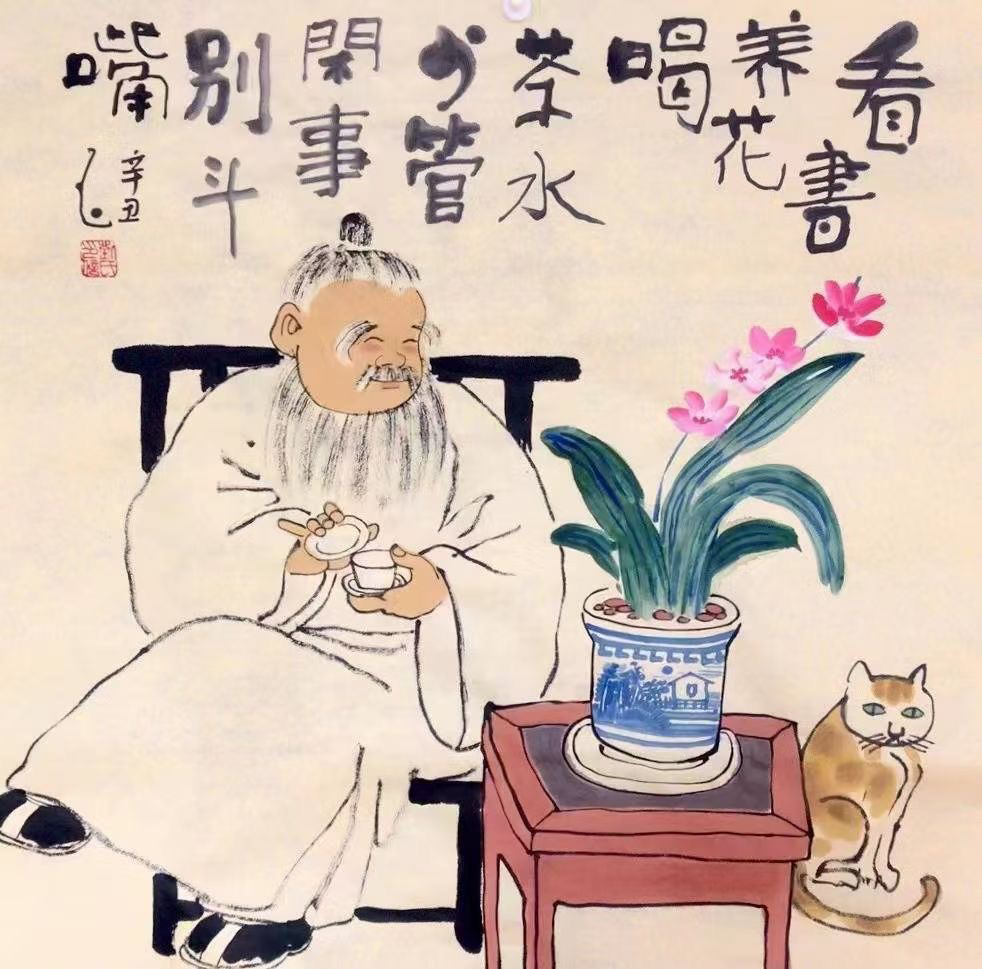 看書
养花
喝
茶水
少管
閑事
别斗
嘴
辛丑